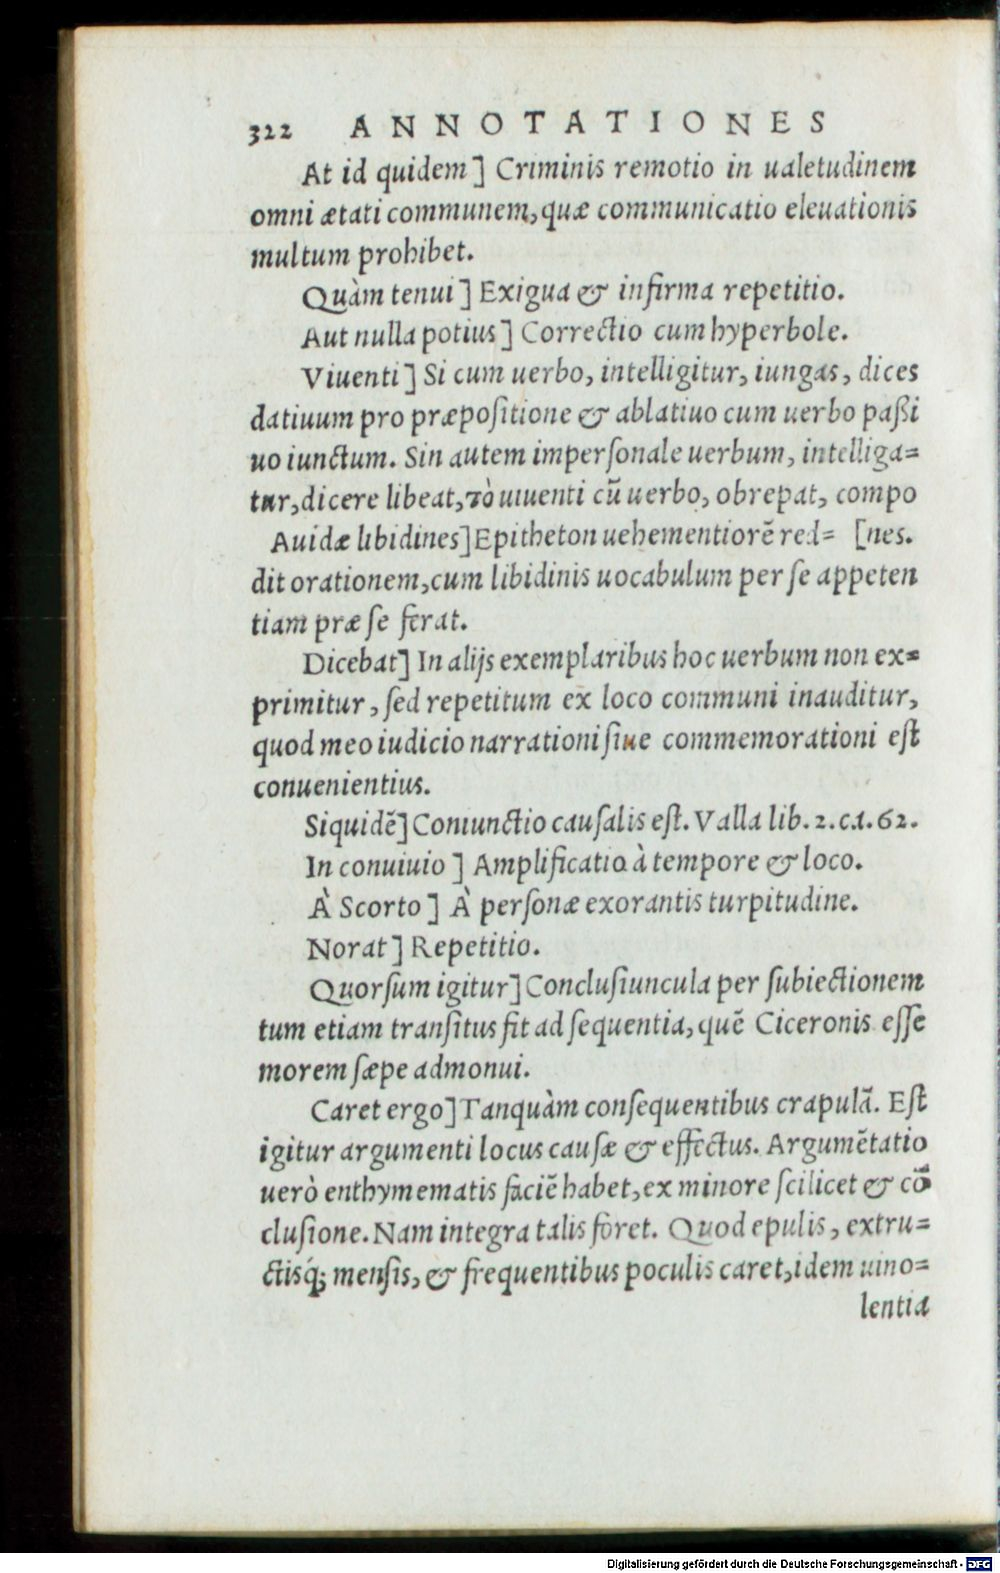 322 ANNOTATIONES
At id quidem] Criminis remotio in ualetudinem
omni ætati communem, quæ communicatio eleuationis
multum prohibet.
Quàm tenui] Exigua & infirma repetitio.
Aut nulla potius] Correctio cum hyperbole.
Viuenti] Si cum uerbo, intelligitur, iungas, dices
datiuum pro præpositione & ablatiuo cum uerbo paßi
uo iunctum. Sin autem impersonale uerbum, intelliga=
tur, dicere libeat, τὸ uiuenti cũ uerbo, obrepat, compo
Auidæ libidines] Epitheton uehementiorẽ red= [nes.
dit orationem, cum libidinis uocabulum per se appeten
tiam præ se ferat.
Dicebat] In alijs exemplaribus hoc uerbum non ex=
primitur, sed repetitum ex loco communi inauditur,
quod meo iudicio narrationi siue commemorationi est
conuenientius.
Siquidẽ] Coniunctio causalis est. Valla lib. 2. ca. 62.
In conuiuio] Amplificatio à tempore & loco.
À Scorto] À personæ exorantis turpitudine.
Norat] Repetitio.
Quorsum igitur] Conclusiuncula per subiectionem
tum etiam transitus fit ad sequentia, quẽ Ciceronis esse
morem sæpe admonui.
Caret ergo] Tanquàm consequentibus crapulã. Est
igitur argumenti locus causæ & effectus. Argumẽtatio
uerò enthymematis faciẽ habet, ex minore scilicet & cõ
clusione. Nam integra talis foret. Quod epulis, extru=
ctisq́; mensis, & frequentibus poculis caret, idem uino=
lentia
Digitalisierung gefördert durch die Deutsche Forschungsgemeinschaft - DFG